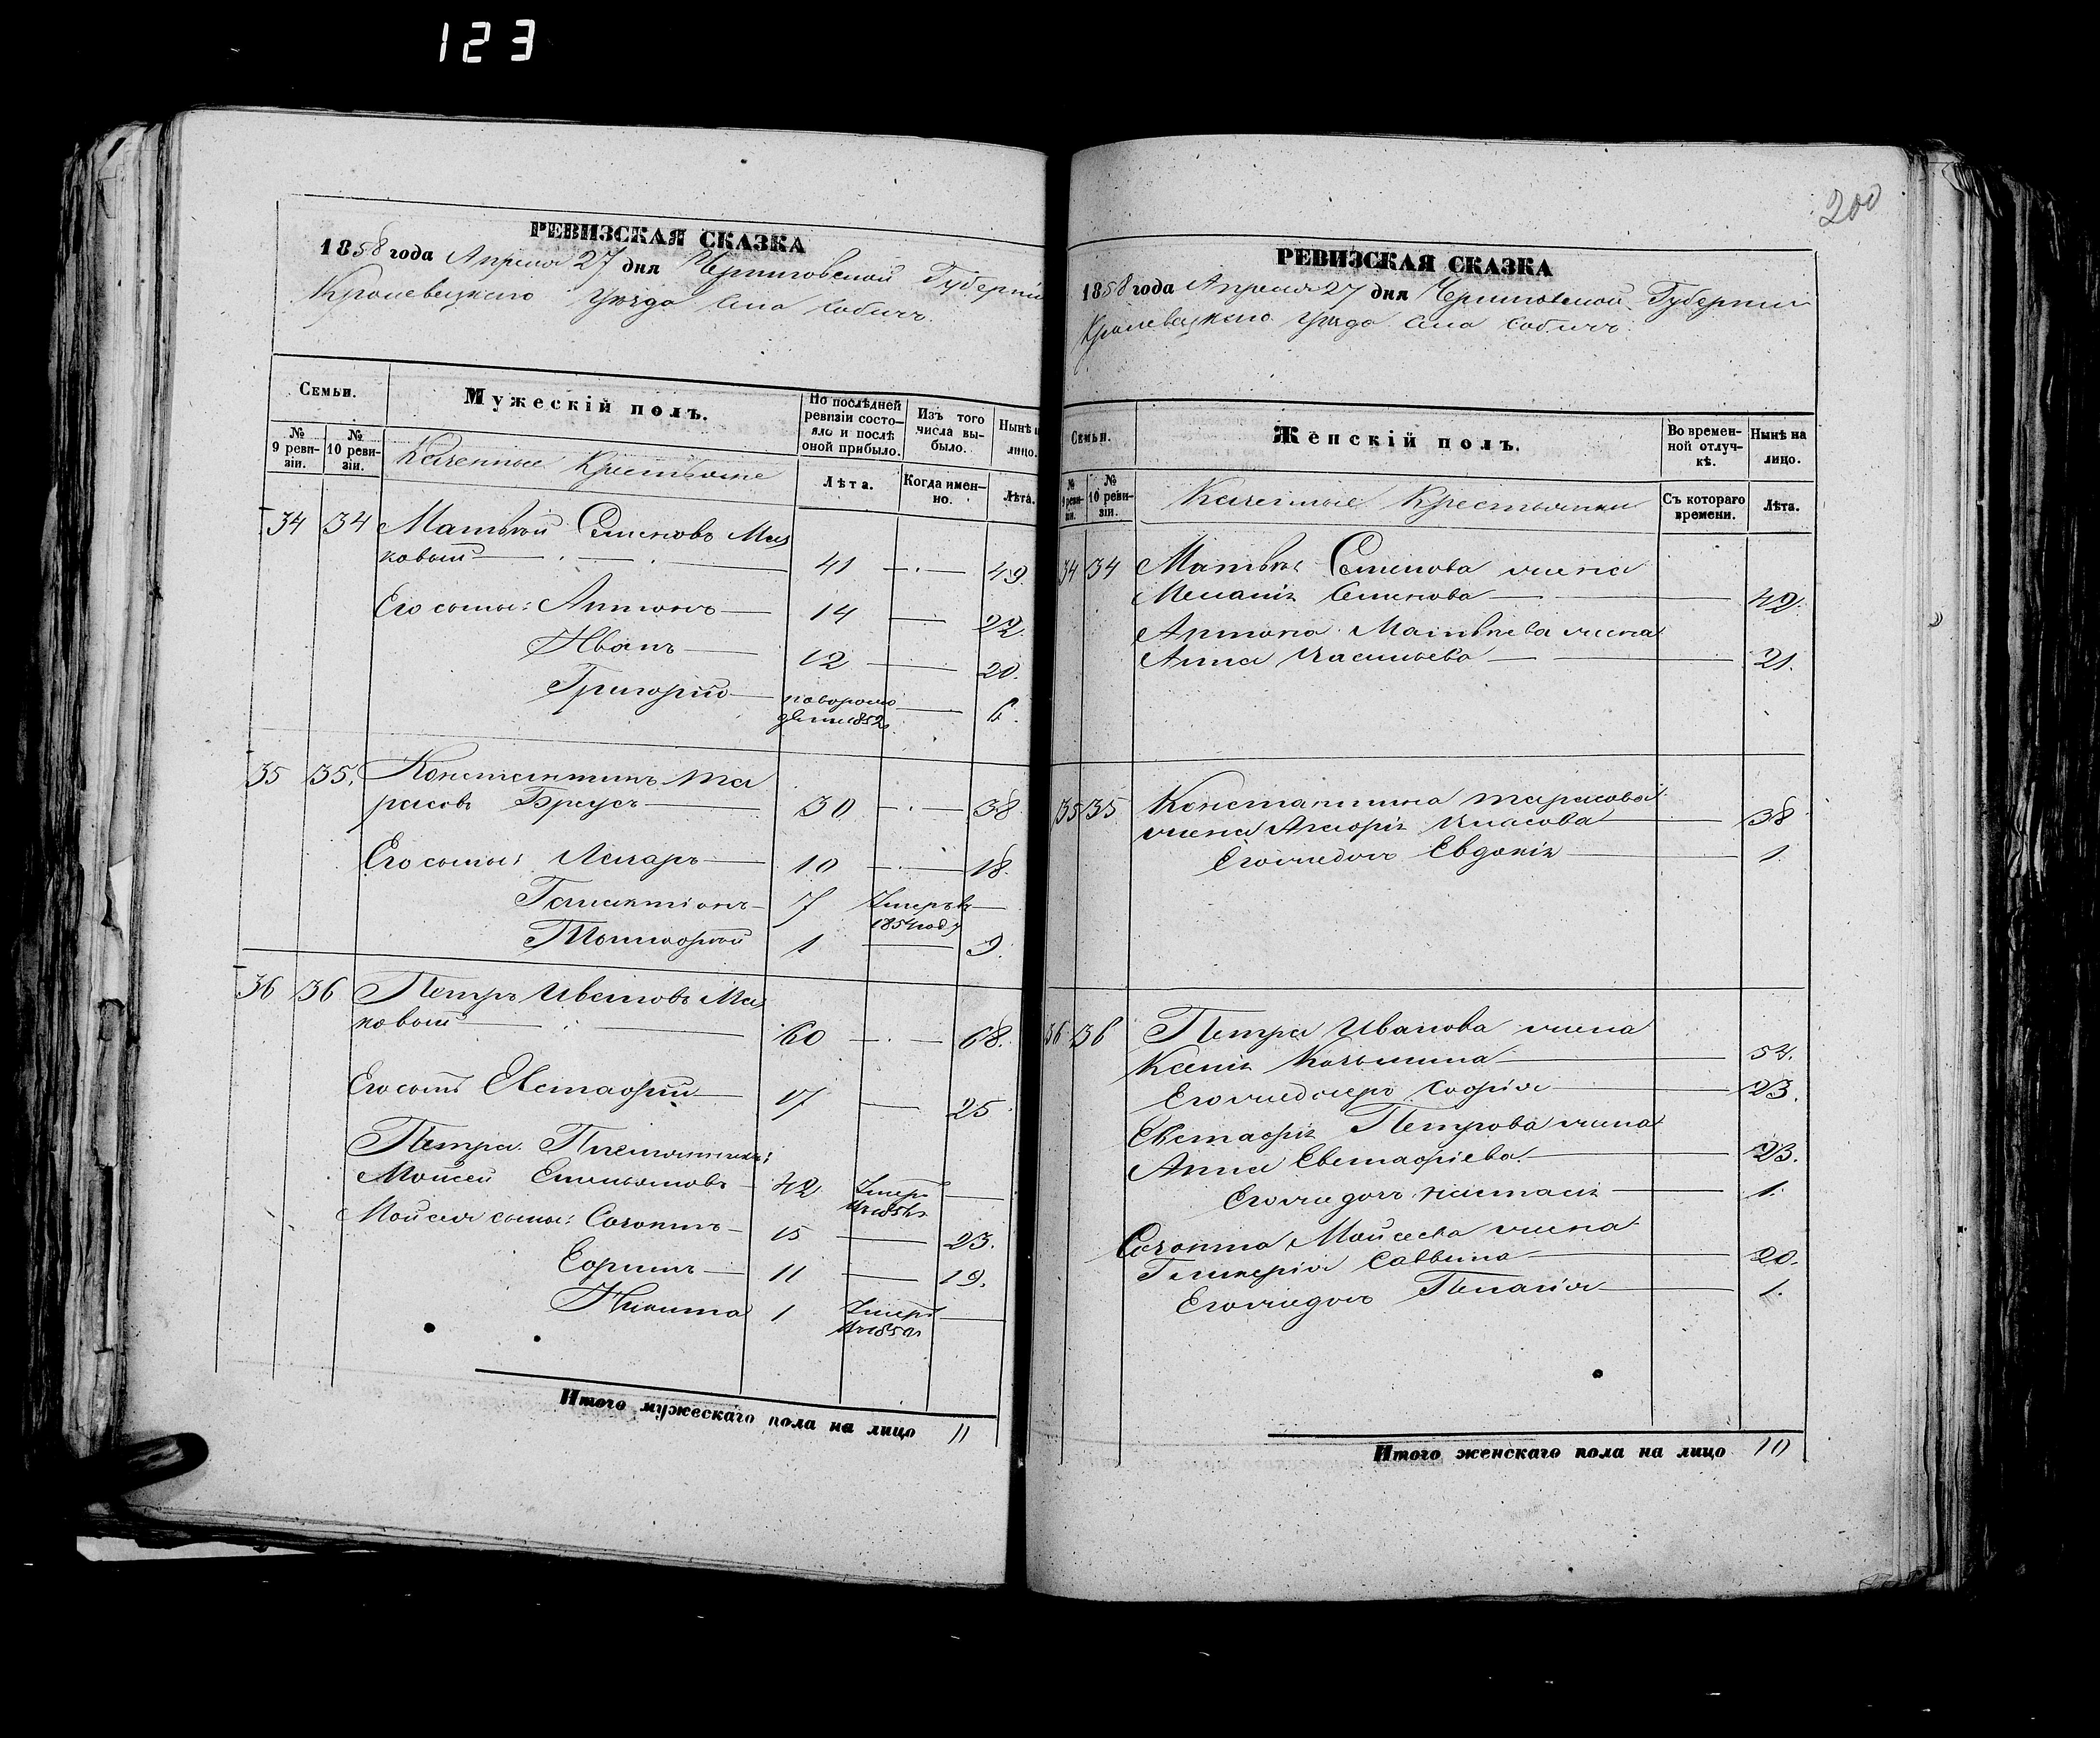 123
РЕВИЗСКАЯ СКАЗКА
1858 года Апреля 27 дня Черниговской Губерніи
Кролевецкаго Уѣзда Села Собичъ.
Семьи.
Мужескій полъ.
По послѣдней ревизіи состояло и послѣ оной прибыло.
Изъ того числа выбыло.
Нынѣ на лицо.
№ 9 ревизіи.
№ 10 ревизіи.
Казенные Крестьяне
Лѣта.
Когда именно.
Лѣта.
34 34 Матвѣй Семеновъ Ма
ковый 41 49.
Его сыны: Антонъ 14 22.
Иванъ 12 20.
Григорій новорож
денъ 1852 6.
35 35. Константинъ Та
расовъ Бреусъ 30 38
Его сыны: Лазарь 10 18.
Галактіонъ 7 Умеръ въ
1854 году
Тимофей 1 9.
36 36 Петръ Ивановъ Ма
ковый 60 68.
Его сынъ Евстафій 17 25
Петра Племянникъ:
Мойсей Емельяновъ 42 Умеръ
Мойсея сыны: Созонтъ 15 23.
Ефримъ 11 19.
Никита 1 Умеръ
Итого мужескаго пола на лицо 11
200
РЕВИЗСКАЯ СКАЗКА
1858 года Апреля 27 дня Черниговской Губерніи
Кролевецкаго Уѣзда Села Собичъ.
Семьи.
Женскій полъ.
Во временной отлучкѣ.
Нынѣ на лицо.
№ 9 ревизіи.
№ 10 ревизіи.
Казенные Крестьянки
Съ котораго времени.
Лѣта.
34 34 Матвѣя Семенова жена
Меланія Семенова 42.
Антона Матвѣева жена
Анна Васильева 21.
35 35 Константина Тарасова
жена Агафія Власова 38
Его же дочь Евдокія 1.
36 36 Петра Иванова жена
Ксенія Козьмина 54.
Его же дочерь Софія 23.
Евстафія Петрова жена
Анна Евстафіева 23.
Его же дочь Настасія 1.
Созонта Мойсеева жена
Гликерія Саввина 20.
Его же дочь Пелагія 1.
Итого женскаго пола на лицо 10